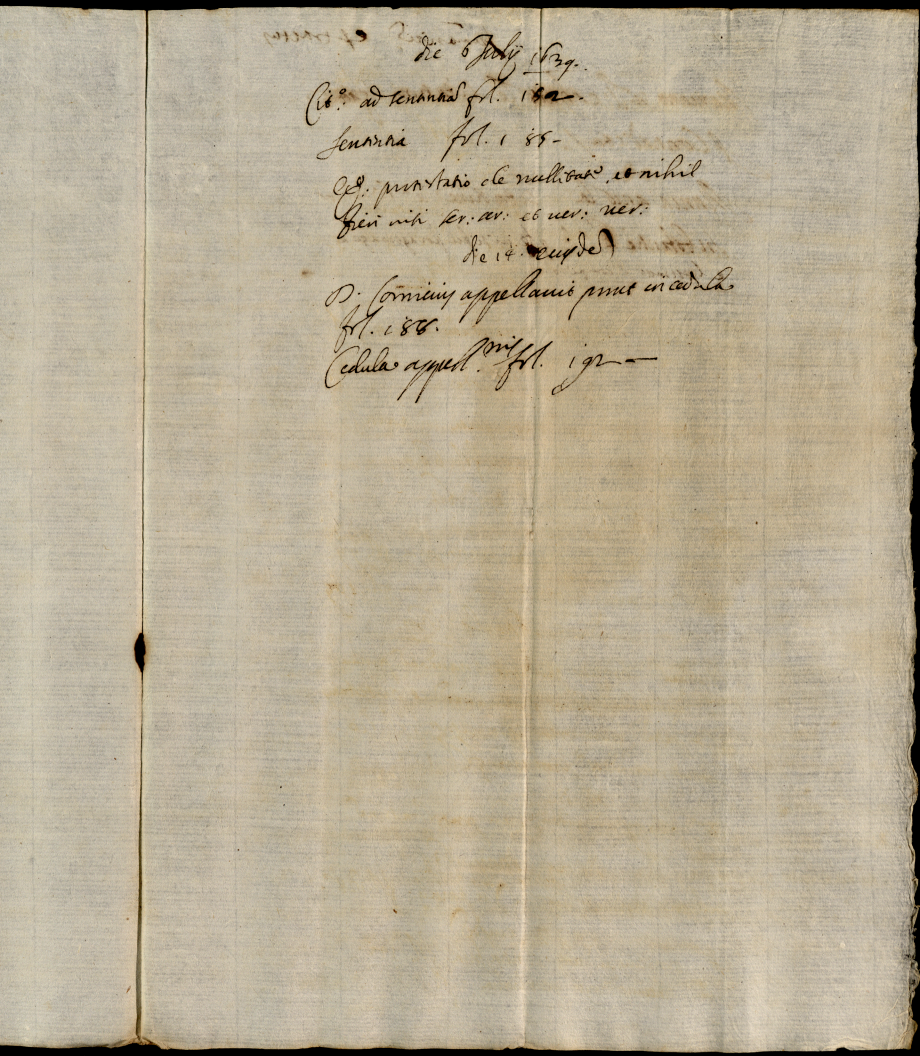 die 6 Julij 1639.
Cit.º ad sententiã fol. 182.
sententia fol. 185-
protestatio de nullitate, et nihil
fieri nisi ser: ser: et ver: ver:
die 14. eiusdẽ
D. appellavit prout in cedula
fol. 188.
Cedula appell.nis fol. 192 —